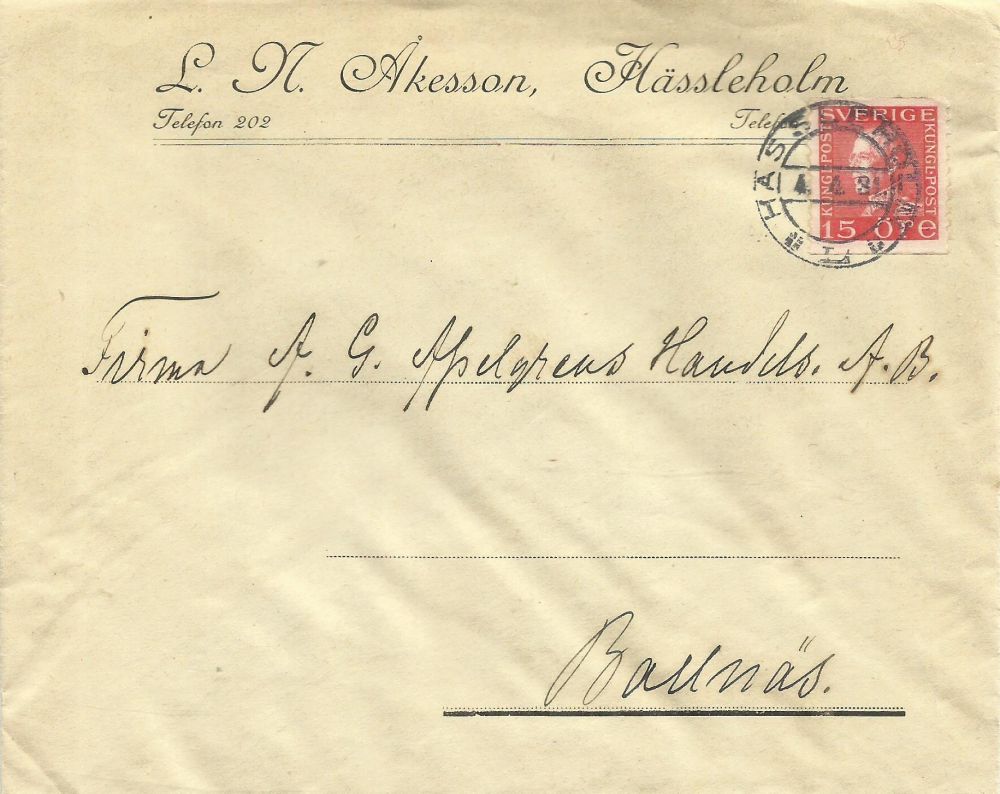 L. N. Åkesson, Hässleholm
Telefon 202
SVERIGE
KUNGL·POST
KUNGL·POST
15 ÖRE
Firma A. G. Apelgrens Handels. A.B.
Bollnäs.